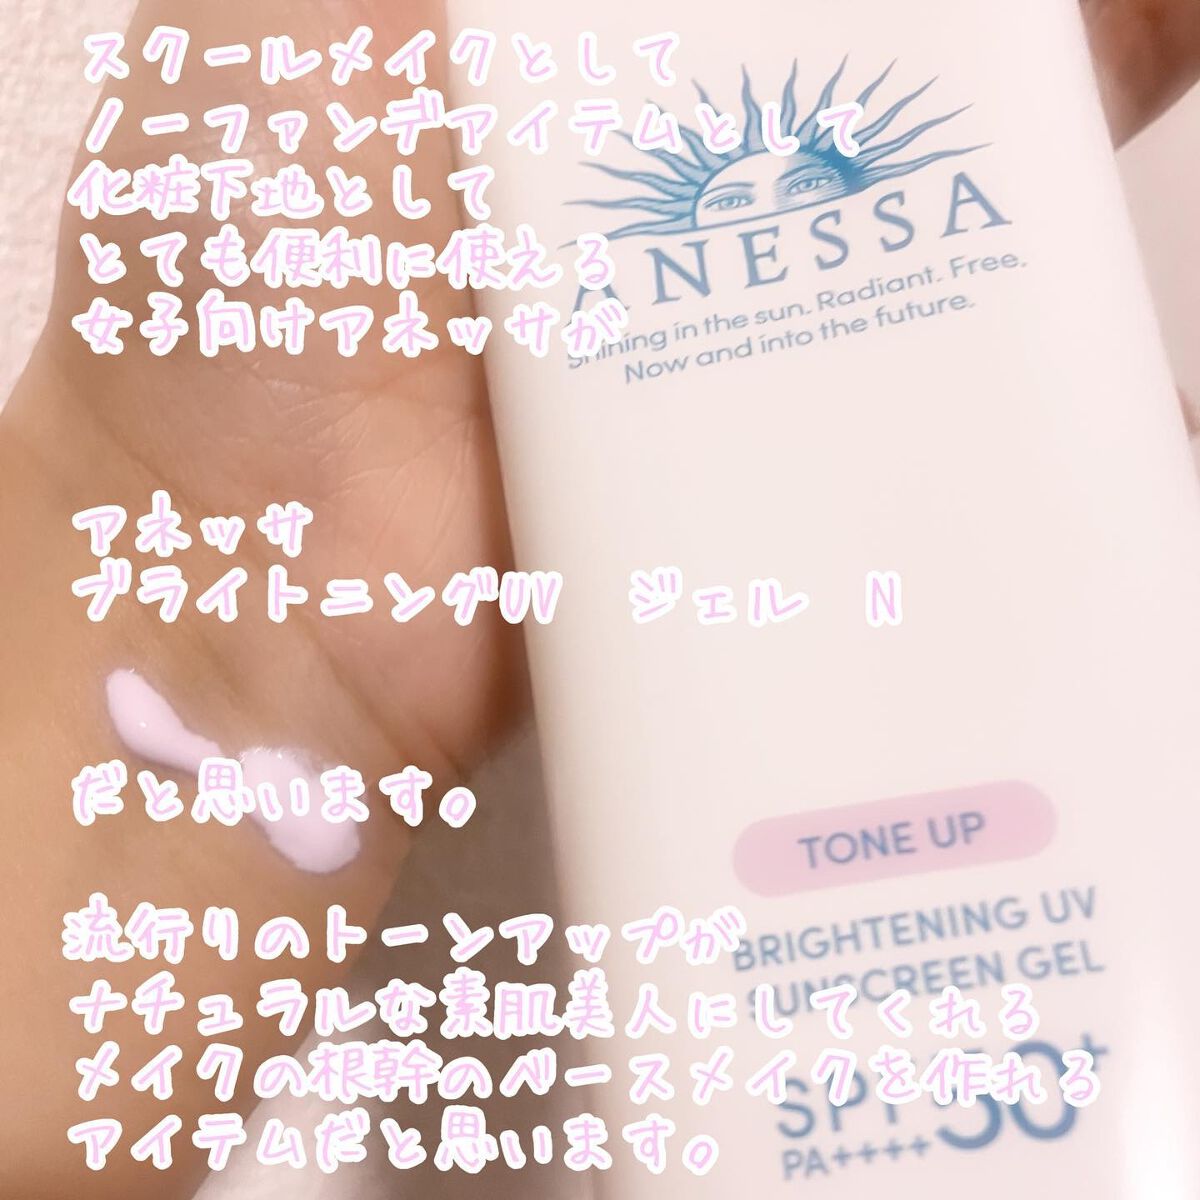 スクールメイクとして
ノーファンデアイテムとして
化粧下地として
とても便利に使える
女子向けアネッサが
アネッサ
ブライトニングUV　ジェル　N
だと思います。
流行りのトーンアップが
ナチュラルな素肌美人にしてくれる
メイクの根幹のベースメイクを作れる
アイテムだと思います。
ANESSA
Shining in the sun. Radiant. Free.
Now and into the future.
TONE UP
BRIGHTENING UV
SUNSCREEN GEL
SPF50+
PA++++